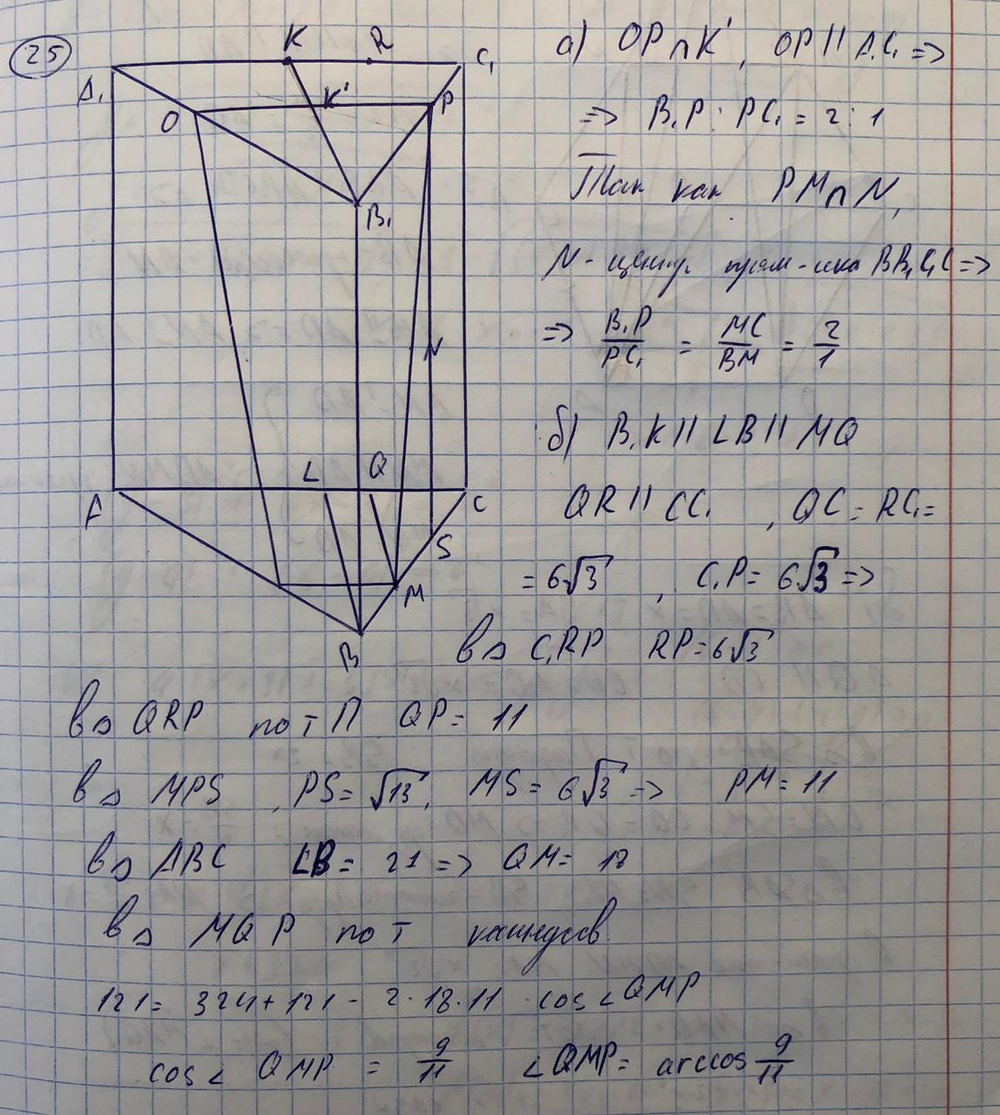 25
K R
A₁ C₁
O K' P
B₁
N
L Q
A C
S
M
B
а) OP∩K', OP || A₁C₁ =>
=> B₁P : PC₁ = 2 : 1
Так как PM∩N,
N - центр прям-ика BB₁C₁C =>
=> B₁P/PC₁ = MC/BM = 2/1
б) B₁K || LB || MQ
QR || CC₁, QC = RC₁ =
= 6√3, C₁P = 6√3 =>
в △ C₁RP RP = 6√3
в △ QRP по т П QP = 11
в △ MPS, PS = √13, MS = 6√3 => PM = 11
в △ ABC LB = 21 => QM = 18
в △ MQP по т косинусов
121 = 324 + 121 - 2 · 18 · 11 · cos ∠ QMP
cos ∠ QMP = 9/11 ∠QMP = arccos 9/11